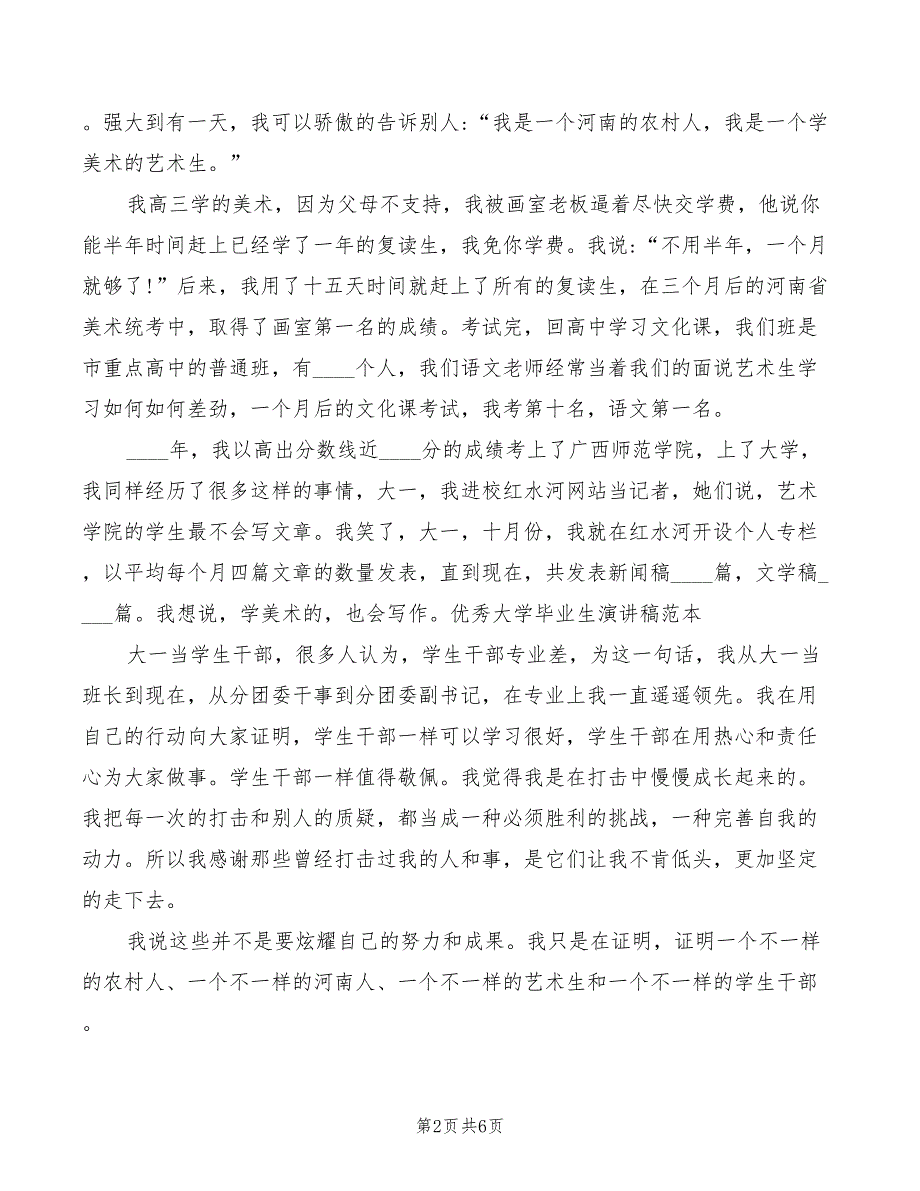 。强大到有一天，我可以骄傲的告诉别人：“我是一个河南的农村人，我是一个学
美术的艺术生。”
我高三学的美术，因为父母不支持，我被画室老板逼着尽快交学费，他说你
能半年时间赶上已经学了一年的复读生，我免你学费。我说：“不用半年，一个月
就够了!”后来，我用了十五天时间就赶上了所有的复读生，在三个月后的河南省
美术统考中，取得了画室第一名的成绩。考试完，回高中学习文化课，我们班是
市重点高中的普通班，有____个人，我们语文老师经常当着我们的面说艺术生学
习如何如何差劲，一个月后的文化课考试，我考第十名，语文第一名。
____年，我以高出分数线近____分的成绩考上了广西师范学院，上了大学，
我同样经历了很多这样的事情，大一，我进校红水河网站当记者，她们说，艺术
学院的学生最不会写文章。我笑了，大一，十月份，我就在红水河开设个人专栏
，以平均每个月四篇文章的数量发表，直到现在，共发表新闻稿____篇，文学稿_
___篇。我想说，学美术的，也会写作。优秀大学毕业生演讲稿范本
大一当学生干部，很多人认为，学生干部专业差，为这一句话，我从大一当
班长到现在，从分团委干事到分团委副书记，在专业上我一直遥遥领先。我在用
自己的行动向大家证明，学生干部一样可以学习很好，学生干部在用热心和责任
心为大家做事。学生干部一样值得敬佩。我觉得我是在打击中慢慢成长起来的。
我把每一次的打击和别人的质疑，都当成一种必须胜利的挑战，一种完善自我的
动力。所以我感谢那些曾经打击过我的人和事，是它们让我不肯低头，更加坚定
的走下去。
我说这些并不是要炫耀自己的努力和成果。我只是在证明，证明一个不一样
的农村人、一个不一样的河南人、一个不一样的艺术生和一个不一样的学生干部
。
第2页 共6页